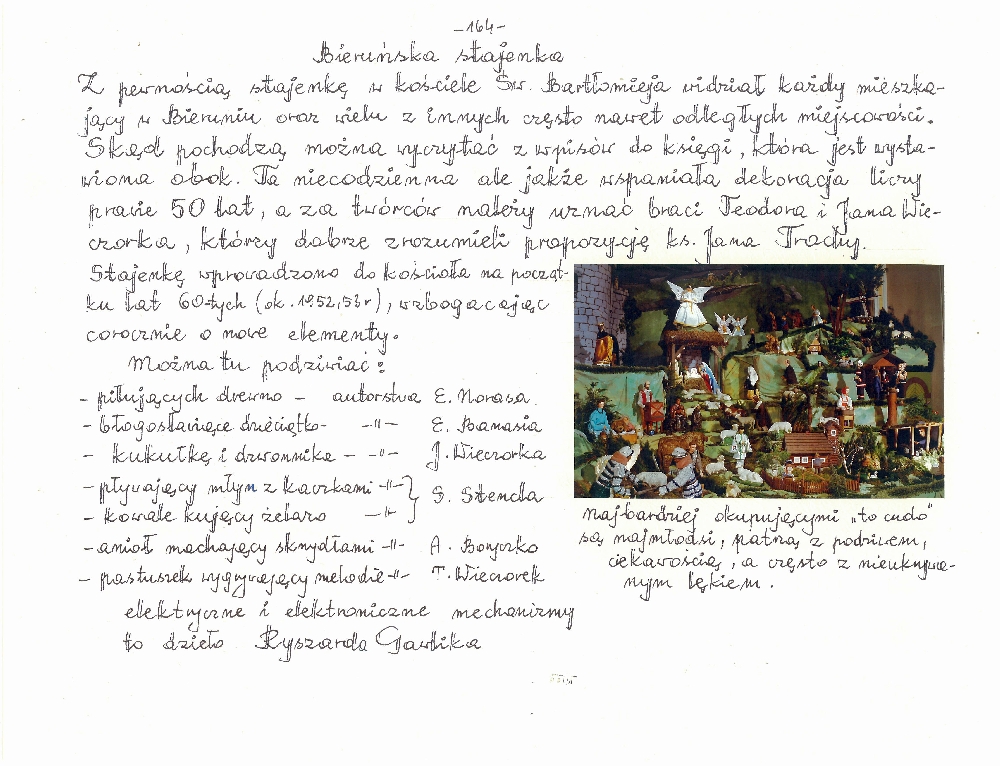 -164-
Bieruńska stajenka
Z pewnością stajenkę w kościele Św. Bartłomieja widział każdy mieszka-
jący w Bieruniu oraz wielu z innych często nawet odległych miejscowości.
Skąd pochodzą można wyczytać z wpisów do księgi, która jest wysta-
wiona obok. Ta niecodzienna ale jakże wspaniała dekoracja liczy
prawie 50 lat, a za twórców należy uznać braci Teodora i Jana Wie-
czorka, którzy dobrze zrozumieli propozycję ks. Jana Trochy.
Stajenkę wprowadzono do kościoła na począt-
ku lat 60-tych (ok. 1952,53r), wzbogacając
corocznie o nowe elementy.
Można tu podziwiać:
- piłujących drewno - autorstwa E. Norasa
- błogosławiące dzieciątko - -"- E. Banasia
- kukułkę i dzwonnika - -"- J. Wieczorka
- pływający młyn z kaczkami -"- } S. Stencla
- kowale kujący żelazo -"-
- anioł machający skrzydłami -"- A. Boryczko
- pastuszek wygrywający melodię -"- T. Wieczorek
elektryczne i elektroniczne mechanizmy
to dzieło Ryszarda Gawlika
najbardziej okupującymi "to cudo"
są najmłodsi, patrzą z podziwem,
ciekawością, a często z nieukrywa-
nym lękiem.